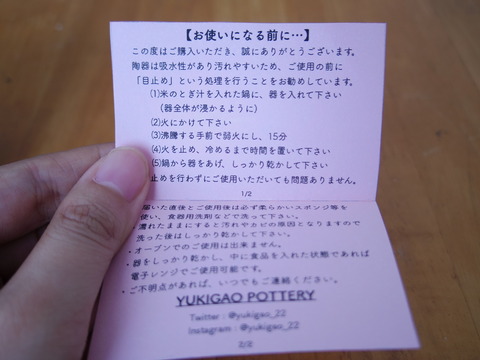 【お使いになる前に…】
この度はご購入いただき、誠にありがとうございます。
陶器は吸水性があり汚れやすいため、ご使用の前に
「目止め」という処理を行うことをお勧めしています。
(1)米のとぎ汁を入れた鍋に、器を入れて下さい
(器全体が浸かるように)
(2)火にかけて下さい
(3)沸騰する手前で弱火にし、15分
(4)火を止め、冷めるまで時間を置いて下さい
(5)鍋から器をあげ、しっかり乾かして下さい
止めを行わずにご使用いただいても問題ありません。
1/2
届いた直後とご使用後は必ず柔らかいスポンジ等を
使い、食器用洗剤などで洗って下さい。
濡れたままにすると汚れやカビの原因となりますので
洗った後はしっかり乾かして下さい。
・オーブンでのご使用は出来ません。
・器をしっかり乾かし、中に食品を入れた状態であれば
電子レンジでご使用可能です。
・ご不明点があれば、いつでもご連絡ください。
YUKIGAO POTTERY
Twitter：@yukigao_22
Instagram：@yukigao_22
2/2